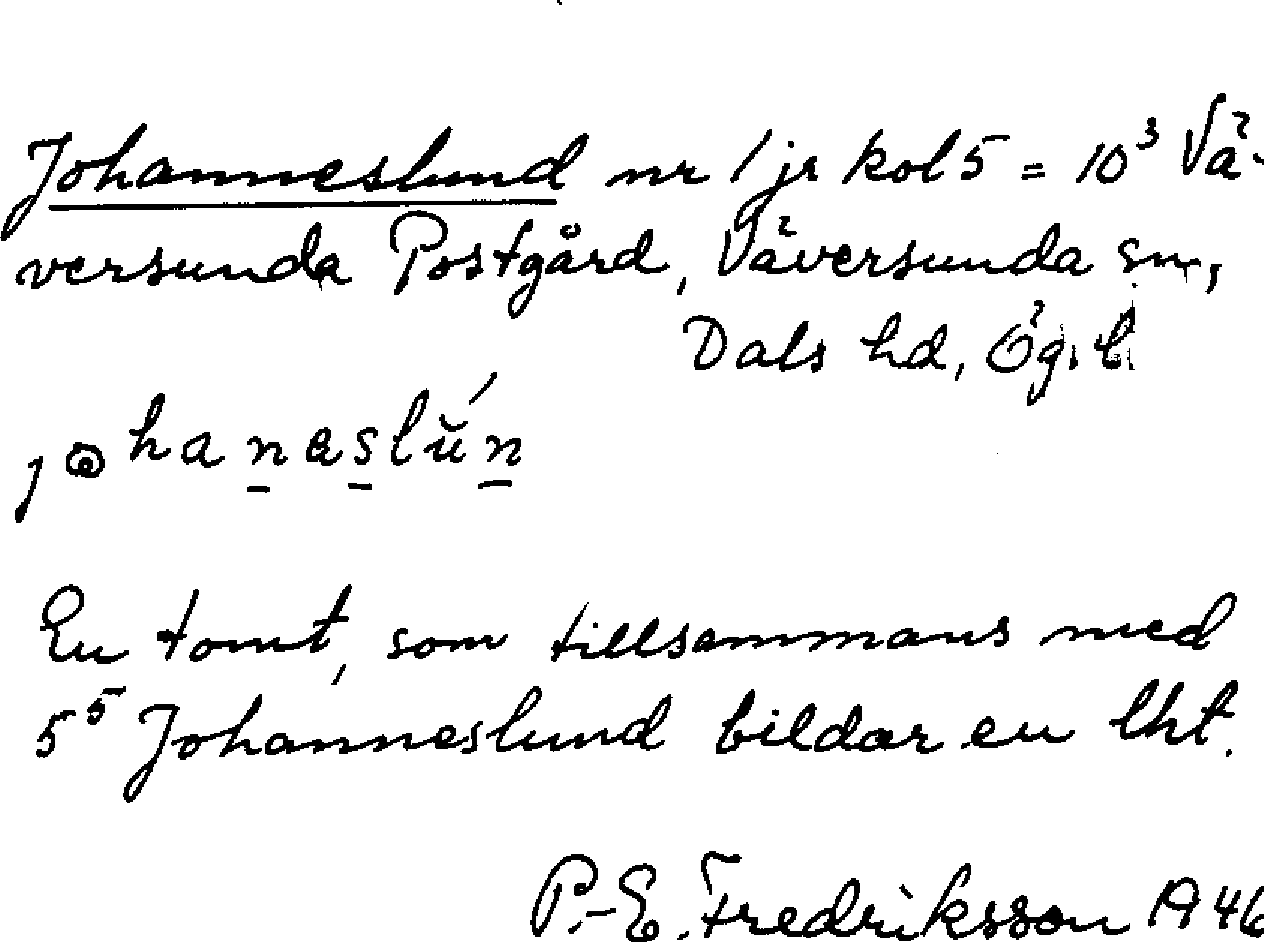 Johanneslund nr 1 jr kol 5 = 10³ Vä-
versunda Postgård, Väversunda sn,
Dals hd, Ög. l.
En tomt, som tillsammans med
5⁵ Johanneslund bildar en lht.
P.-E. Fredriksson 1946